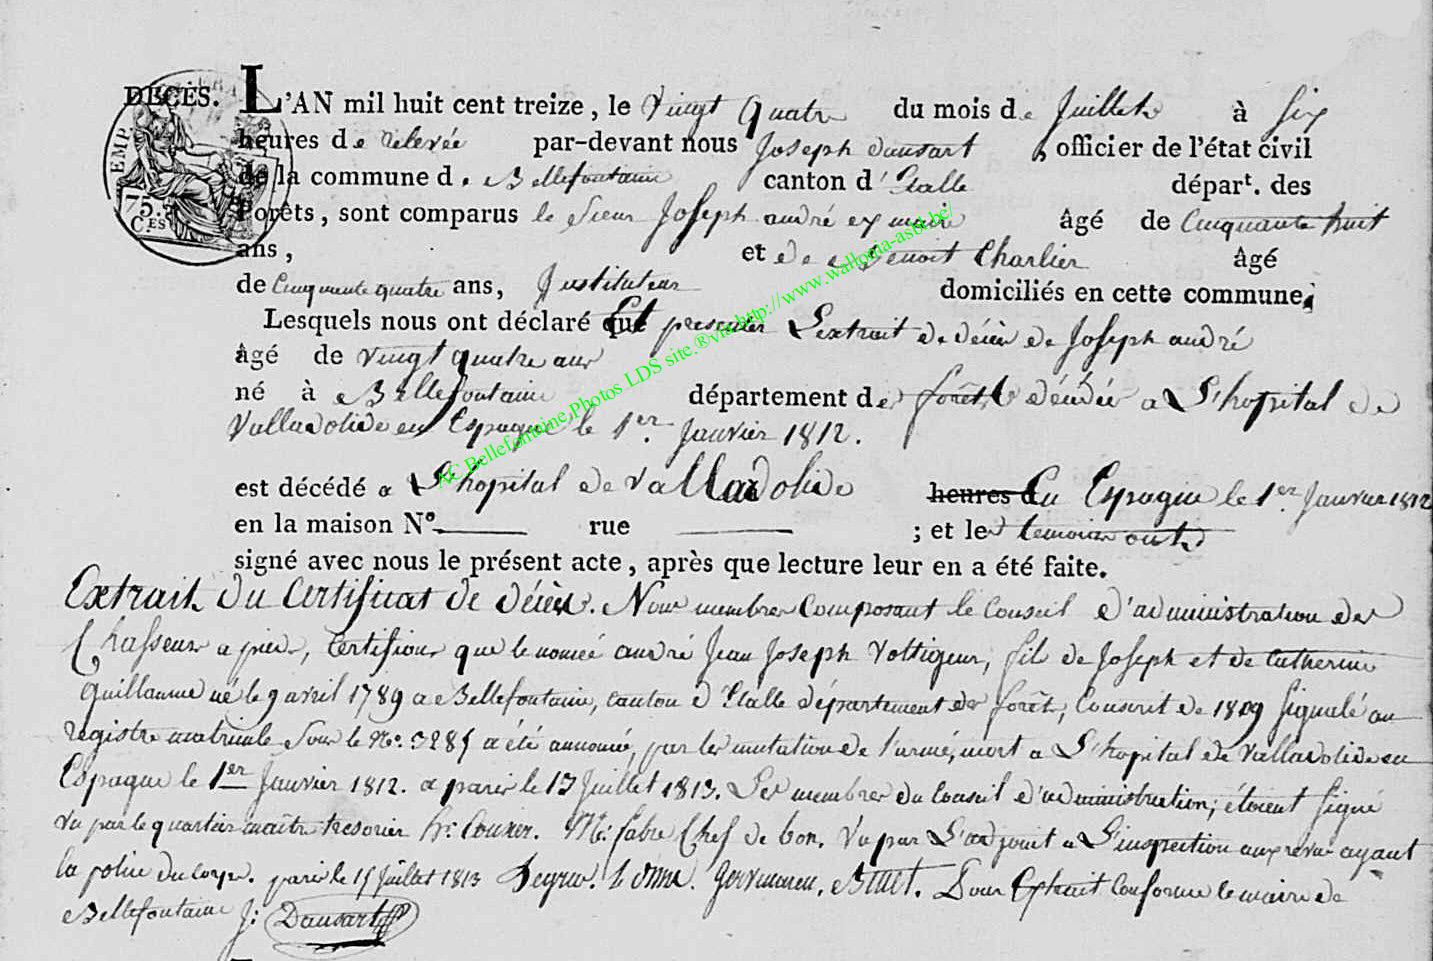 DÉCÈS. L'AN mil huit cent treize, le Vingt Quatre du mois de Juillet à six
heures de relevée par-devant nous Joseph dausart, officier de l'état civil
de la commune d. Bellefontaine canton d'Etalle départ. des
Forêts, sont comparus le sieur Joseph andré ex maire âgé de Cinquante huit
ans, et de Benoit Charlier âgé
de Cinquante quatre ans, Instituteur domiciliés en cette commune,
Lesquels nous ont déclaré Et presenter L'extrait de décès de Joseph andré
âgé de vingt quatre ans
né à Bellefontaine département des forêts décédé a L'hopital de
Valladolide en Espagne le 1er Janvier 1812.
est décédé a L'hopital de Valladolide heures d En Espagne le 1er Janvier 1812
en la maison N° rue ; et les temoins ont
signé avec nous le présent acte, après que lecture leur en a été faite.
Extrait du Certificat de décès. Nous membres composant le Conseil d'administration des
Chasseurs a pied, Certifions que le nomé andré Jean Joseph Voltigeur, fils de Joseph et de Catherine
Guillaume né le 9 avril 1789 a Bellefontaine, canton d'Etalle département des forêts, Conscrit de 1809 signalé au
registre matricule sous le No. 3285 a été annoncé, par les mutations de l'armé, mort a L'hopital de Valladolide en
Espagne le 1er Janvier 1812. a paris le 13 Juillet 1813. Les membres du Conseil d'administration, étoient signé
vu par le quartier maître tresorier Couxer. Mr. fabre Chef de bon. Vu par L'adjoint a L'inspection aux revues ayant
la police du corps. paris le 15 Juillet 1813 Binet. Pour Extrait Conforme le maire de
Bellefontaine J: Dausart
75. CES
EMP
AC Bellefontaine Photos LDS site ® via http://www.wallonia-asbl.be/